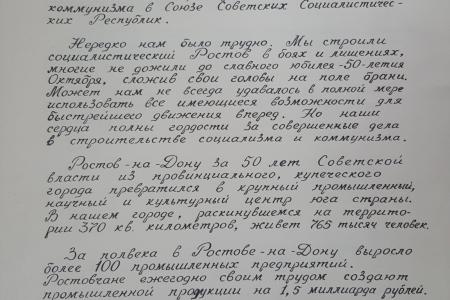 коммунизма в Союзе Советских Социалистичес-
ких Республик.
Нередко нам было трудно. Мы строили
социалистический Ростов в боях и лишениях,
многие не дожили до славного юбилея-50-летия
Октября, сложив свои головы на поле брани.
Может нам не всегда удавалось в полной мере
использовать все имеющиеся возможности для
быстрейшего движения вперед. Но наши
сердца полны гордости за совершенные дела
в строительстве социализма и коммунизма.
Ростов-на-Дону за 50 лет Советской
власти из провинциального, купеческого
города превратился в крупный промышленный,
научный и культурный центр юга страны.
В нашем городе, раскинувшемся на террито-
рии 370 кв. километров, живет 765 тысяч человек.
За полвека в Ростове-на-Дону выросло
более 100 промышленных предприятий.
Ростовчане ежегодно своим трудом создают
промышленной продукции на 1,5 миллиарда рублей.